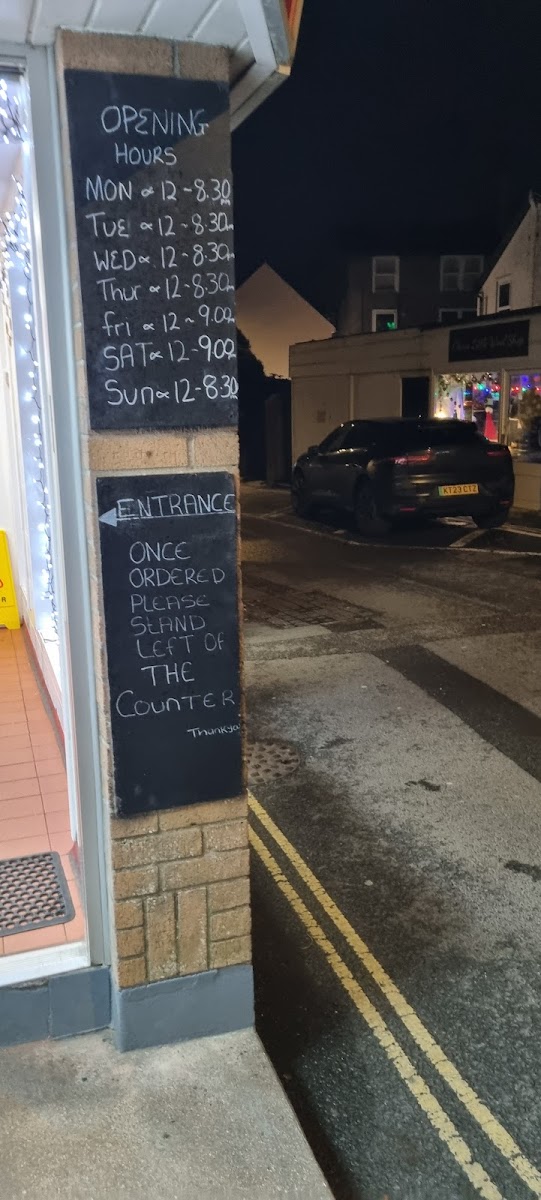 OPENING
HOURS
MON ∝ 12-8.30
TUE ∝ 12-8.30
WED ∝ 12-8.30
Thur ∝ 12-8.30
fri ∝ 12-9.00
SAT ∝ 12-900
Sun ∝ 12-830
ENTRANCE
ONCE
ORDERED
PLEASE
StAND
LEfT OF
THE
CounTER
Thankyou
KT23 CTZ
Little Wool Shop